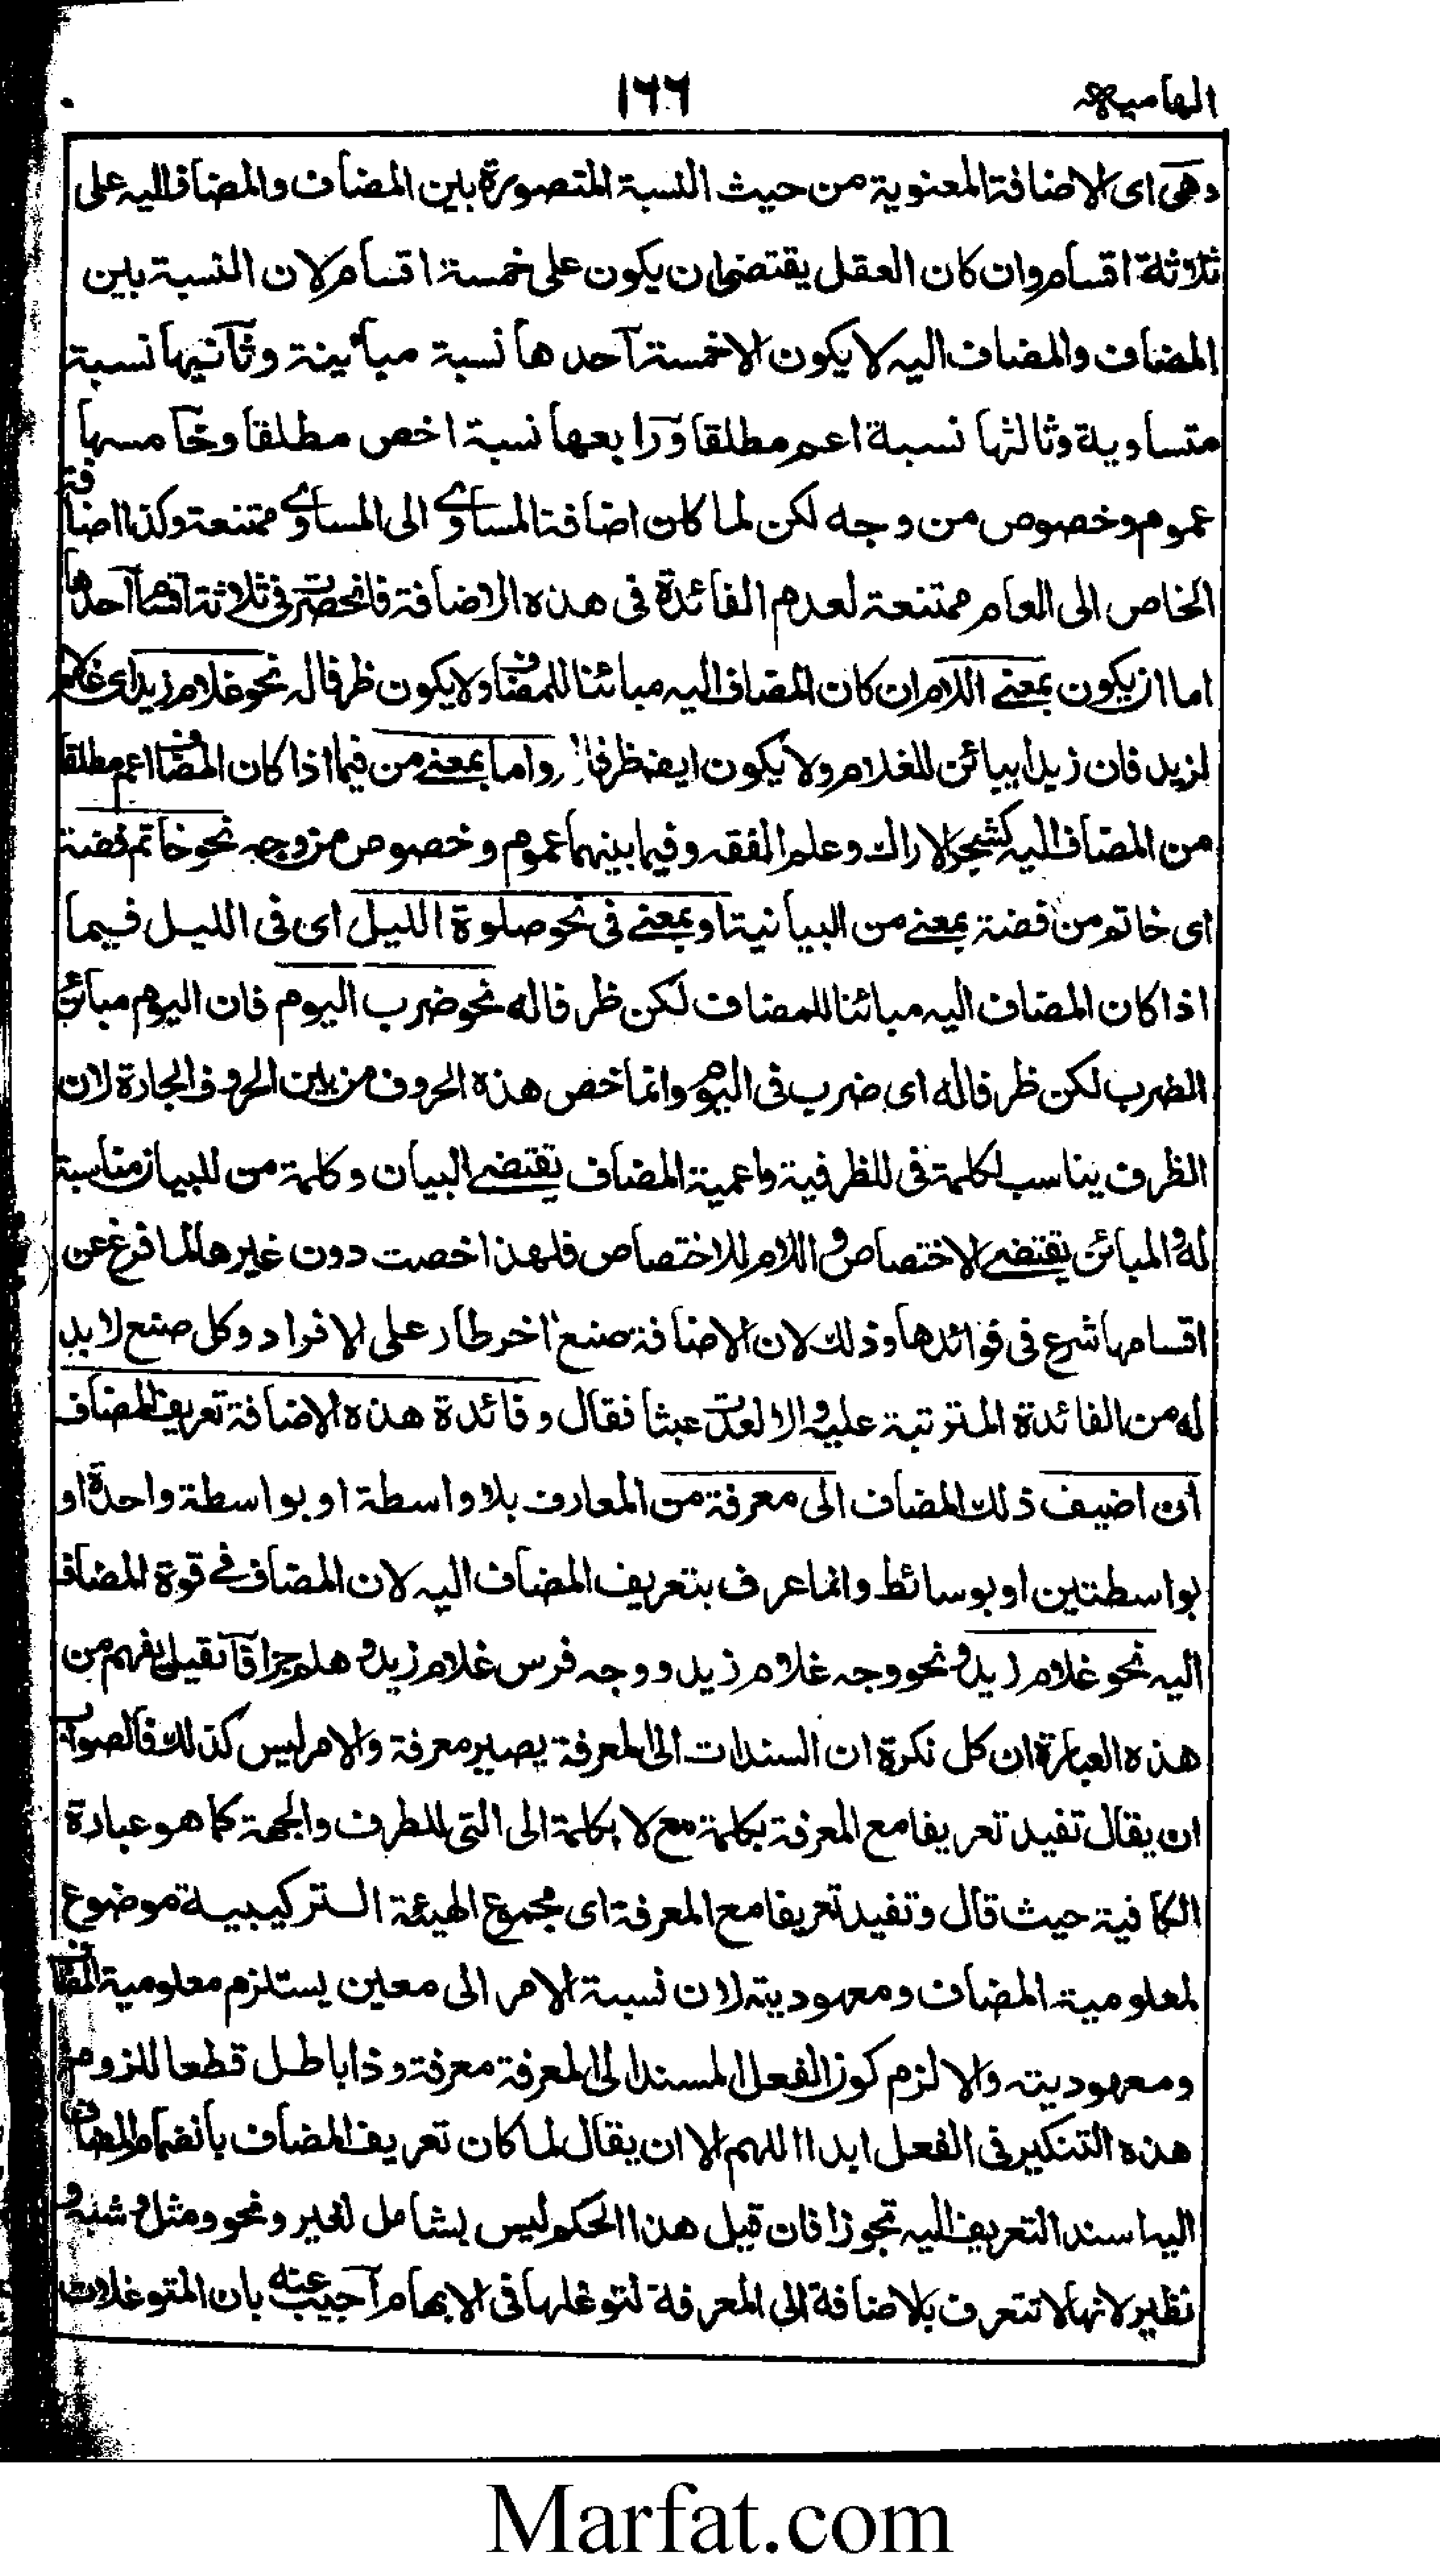 الهاميه
١٦٦
وهى اى الاضافة المعنوية من حيث النسبة المتصورة بين المضاف والمضاف اليه على
ثلاثة اقسام وان كان العقل يقتضى ان يكون على خمسة اقسام لان النسبة بين
المضاف والمضاف اليه لا يكون الا خمسة احدها نسبة مبائينة وثانيها نسبة
متساوية وثالثها نسبة اعم مطلقا ورابعها نسبة اخص مطلقا وخامسها
عموم وخصوص من وجه لكن لما كان اضافة المساوى الى المساوى ممتنعة وكذا اضافة
الخاص الى العام ممتنعة لعدم الفائدة فى هذه الاضافة فانحصرت فى ثلاثة اقسام احدها
اما ان يكون بمعنى اللام ان كان المضاف اليه مبائنا للمضاف ولا يكون ظرفا له نحو غلام زيد اى غلام
لزيد فان زيدا يبائن للغلام ولا يكون ايضا ظرفا واما بمعنى من فيما اذا كان المضاف اعم مطلقا
من المضاف اليه كشجر الاراك وعلم الفقه وفيما بينهما عموم وخصوص من وجه نحو خاتم فضة
اى خاتم من فضة بمعنى من البيانية او بمعنى فى نحو صلوة الليل اى فى الليل فيما
اذا كان المضاف اليه مبائنا للمضاف لكن ظرفا له نحو ضرب اليوم فان اليوم مبائن
الضرب لكن ظرفا له اى ضرب فى اليوم وانما خص هذه الحروف من بين الحروف الجارة لان
الظرف يناسب لكلمة فى للظرفية واعمية المضاف يقتضى البيان وكلمة من للبيان مناسبة
له والمبائن يقتضى الاختصاص واللام للاختصاص فلهذا اخصت دون غيرها لما فرغ عن
اقسامها شرع فى فوائدها وذلك لان الاضافة صنع اخر طار على الافراد وكل صنع لا بد
له من الفائدة المترتبة عليه والا لعدت عبثا فقال وفائدة هذه الاضافة تعريف المضاف
ان اضيف ذلك المضاف الى معرفة من المعارف بلا واسطة او بواسطة واحدة او
بواسطتين او بوسائط وانما عرف بتعريف المضاف اليه لان المضاف فى قوة المضاف
اليه نحو غلام زيد ونحو وجه غلام زيد ووجه فرس غلام زيد وهلم جرا فان قيل يفهم من
هذه العبارة ان كل نكرة ان اسندت الى المعرفة يصير معرفة والامر ليس كذلك فالصواب
ان يقال تفيد تعريفا مع المعرفة بكلمة مع لا بكلمة الى التى للطرف والجهة كما هو عبارة
الكافية حيث قال وتفيد تعريفا مع المعرفة اى مجموع الهيئة التركيبية موضوع
لمعلومية المضاف ومعهوديته لان نسبة الامر الى معين يستلزم معلومية المضاف
ومعهوديته والا لزم كون الفعل المسند الى المعرفة معرفة وذا باطل قطعا للزوم
هذه التنكير فى الفعل ابدا اللهم الا ان يقال لما كان تعريف المضاف بانضمام المضاف
اليه اسند التعريف اليه تجوزا فان قيل هذا الحكم ليس بشامل لغير ونحو ومثل وشبه و
نظير لانها لا تتعرف بالاضافة الى المعرفة لتوغلها فى الابهام اجيب عنه بان المتوغلات
Marfat.com